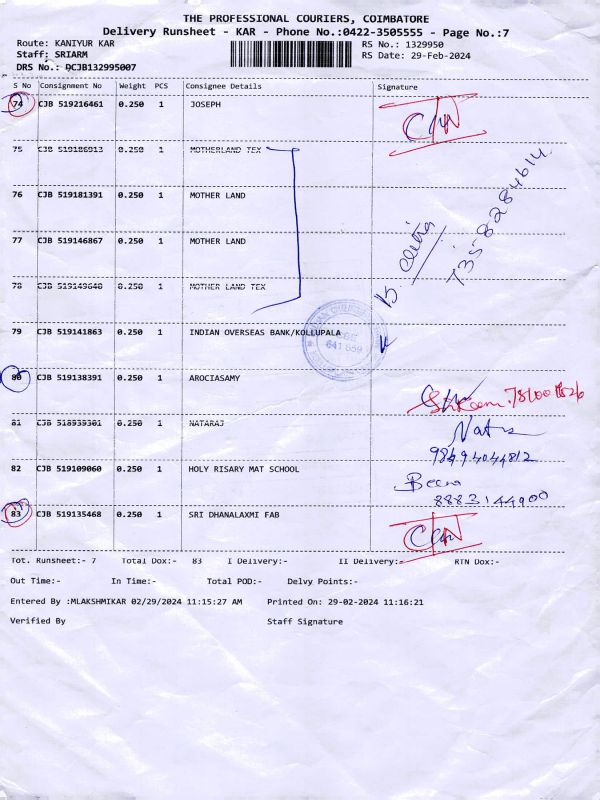 THE PROFESSIONAL COURIERS, COIMBATORE
Delivery Runsheet - KAR - Phone No.:0422-3505555 - Page No.:7
Route: KANIYUR KAR RS No.: 1329950
Staff: SRIARM RS Date: 29-Feb-2024
DRS No.: DCJB132995007
S No Consignment No Weight PCS Consignee Details Signature
74 CJB 519216461 0.250 1 JOSEPH
75 CJB 519186913 0.250 1 MOTHERLAND TEX
76 CJB 519181391 0.250 1 MOTHER LAND
77 CJB 519146867 0.250 1 MOTHER LAND
7358284614
78 CJB 519149640 0.250 1 MOTHER LAND TEX
79 CJB 519141863 0.250 1 INDIAN OVERSEAS BANK/KOLLUPALA
641 659
80 CJB 519138391 0.250 1 AROCIASAMY
81 CJB 518939301 0.250 1 NATARAJ
82 CJB 519109060 0.250 1 HOLY RISARY MAT SCHOOL
Beena
8883144900
83 CJB 519135468 0.250 1 SRI DHANALAXMI FAB
Tot. Runsheet:- 7 Total Dox:- 83 I Delivery:- II Delivery:- RTN Dox:-
Out Time:- In Time:- Total POD:- Delvy Points:-
Entered By :MLAKSHMIKAR 02/29/2024 11:15:27 AM Printed On: 29-02-2024 11:16:21
Verified By Staff Signature